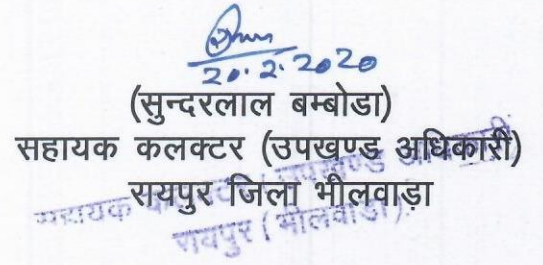 20.2.2020
(सुन्दरलाल बम्बोडा)
सहायक कलक्टर (उपखण्ड अधिकारी)
रायपुर जिला भीलवाड़ा
सहायक उपखण्ड अधिकारी
रायपुर (भीलवाडा)